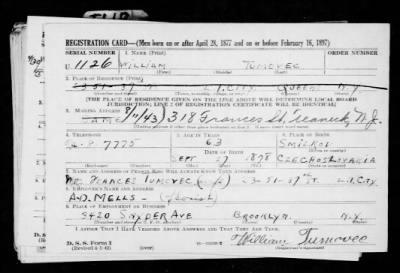 REGISTRATION CARD—(Men born on or after April 28, 1877 and on or before February 16, 1897)
SERIAL NUMBER 1. NAME (Print) ORDER NUMBER
U 1126 WILLIAM TUMOVEC
(First) (Middle) (Last)
2. PLACE OF RESIDENCE (Print)
L.I. CITY QUEENS N.Y.
[THE PLACE OF RESIDENCE GIVEN ON THE LINE ABOVE WILL DETERMINE LOCAL BOARD
JURISDICTION; LINE 2 OF REGISTRATION CERTIFICATE WILL BE IDENTICAL]
3. MAILING ADDRESS
SAME 8/11/43) 318 Frances St, Teaneck, N.J.
4. TELEPHONE 5. AGE IN YEARS 6. PLACE OF BIRTH
7775 63 SMILKOV
DATE OF BIRTH
SEPT 27 1878 CZECHOSLOVAKIA
7. NAME AND ADDRESS OF PERSON WHO WILL ALWAYS KNOW YOUR ADDRESS
FRANCES TUMOVEC L.I. CITY
8. EMPLOYER'S NAME AND ADDRESS
A.D. MELLS - (florist)
9. PLACE OF EMPLOYMENT OR BUSINESS
5420 SNYDER AVE BROOKLYN. N.Y.
I AFFIRM THAT I HAVE VERIFIED ABOVE ANSWERS AND THAT THEY ARE TRUE.
D. S. S. Form 1
(Revised 4-1-42) (over)
William Tumovec